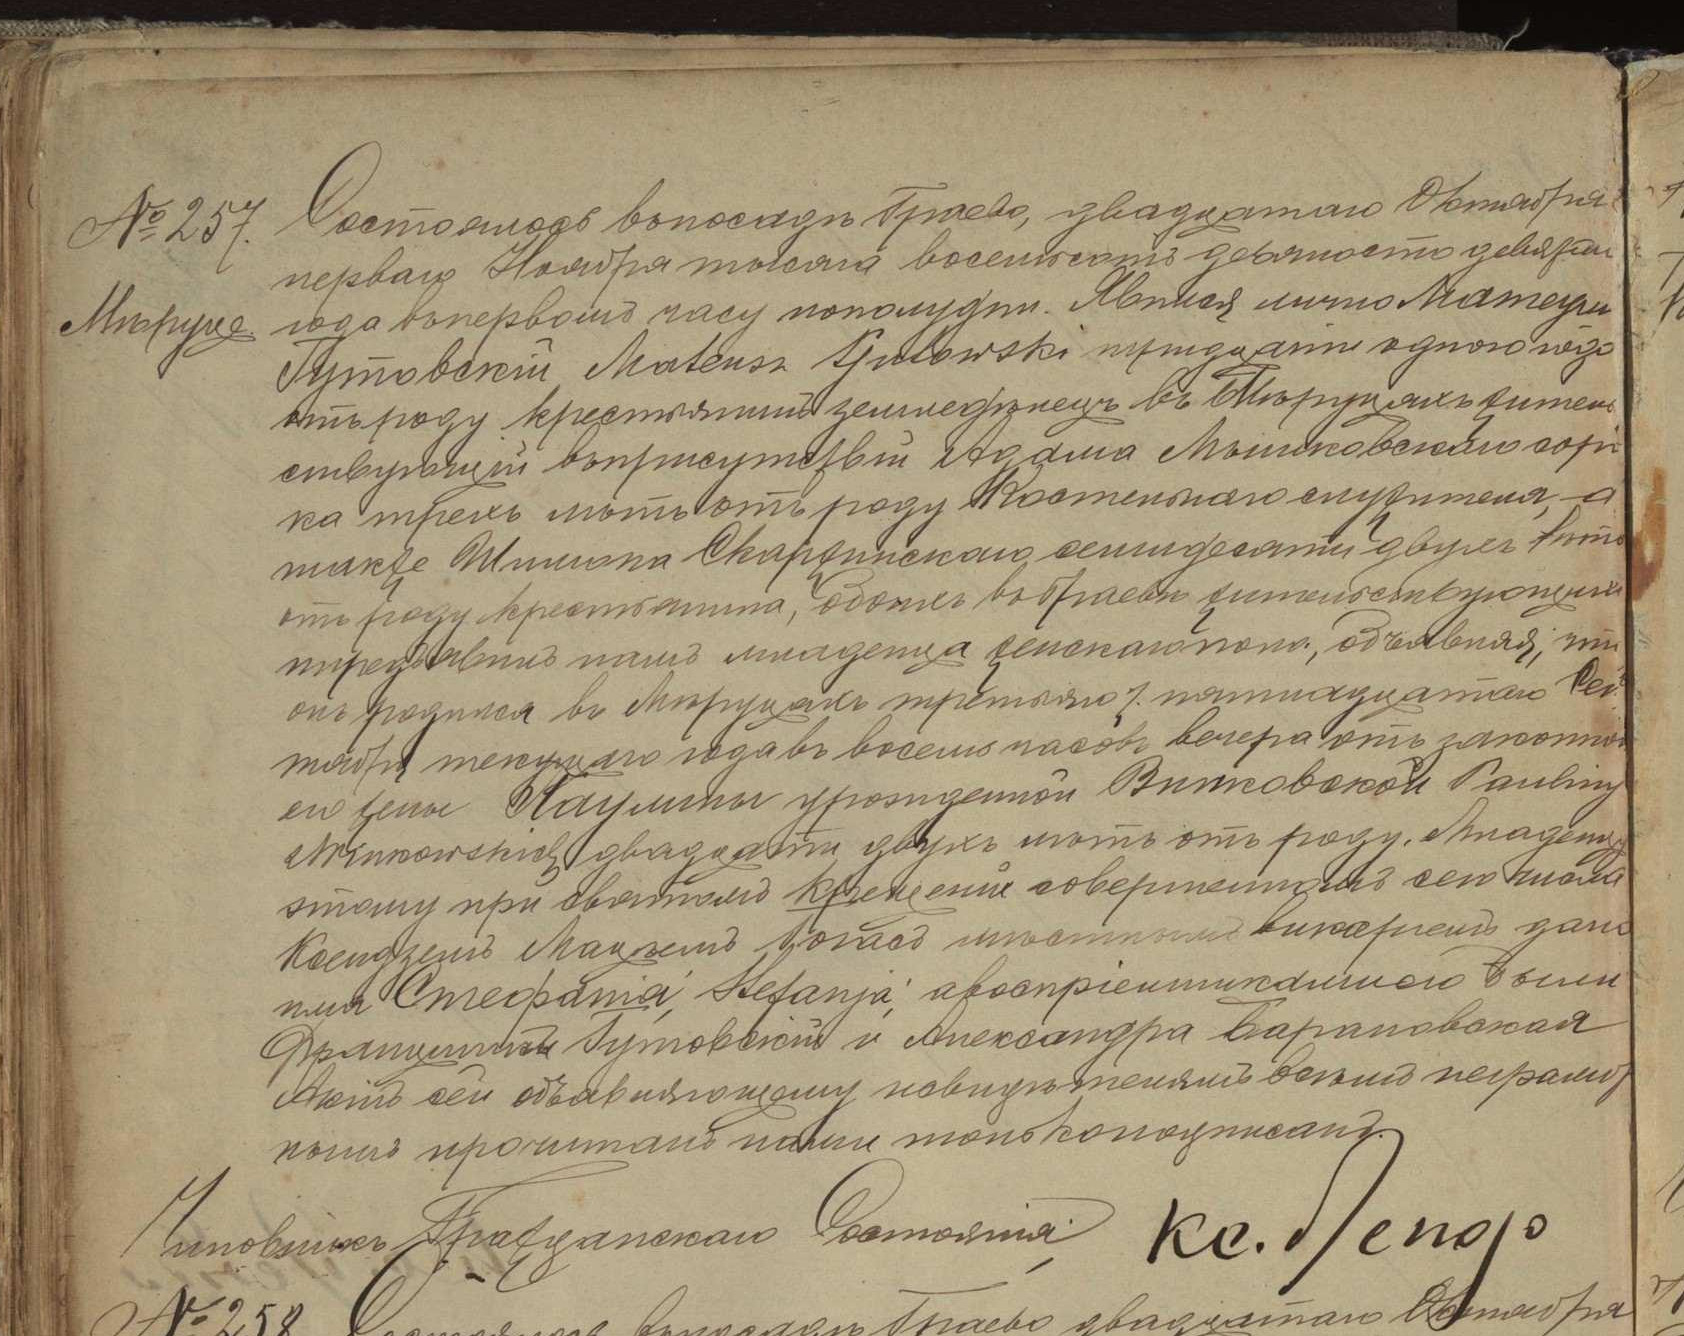 № 257.
Мѣруце.
Состоялось въ посадѣ Граево, двадцатаго Октября
перваго Ноября тысяча восемьсотъ девяносто девятаго
года въ первомъ часу пополудни. Явился лично Матеушъ
Гутовскій Mateusz Gutowski тридцати одного года
отъ роду крестьянинъ земледѣлецъ въ Мѣруцахъ житель
ствующій въ присутствіи Адама Мышковскаго сорo
ка трехъ лѣтъ отъ роду Костельнаго служителя, а
также Шимона Скаржинскаго семидесяти двухъ лѣтъ
отъ роду крестьянина, обоихъ въ Граевѣ жительствующихъ
и предъявилъ намъ младенца женскаго пола, объявляя, что
онъ родился въ Мѣруцахъ третьяго /. пятнадцатаго Сен
тября текущаго года въ восемь часовъ вечера отъ законной
его жены Паулины урожденной Винковской Pauliny
Winkowskich двадцати двухъ лѣтъ отъ роду. Младенцу
этому при святомъ крещеніи совершенномъ сего числа
Ксендземъ мѣстнымъ викаріемъ дано
имя Стефанія, Stefanja, а воспріемниками его были
Францишекъ Гутовскій и Александра Барановская
Актъ сей объявляющему и свидѣтелямъ всѣмъ неграмот
нымъ прочитанъ нами только подписанъ.
Чиновникъ Гражданскаго Состоянія: Кс.
№ 258 Состоялось въ посадѣ Граево двадцатаго Октября